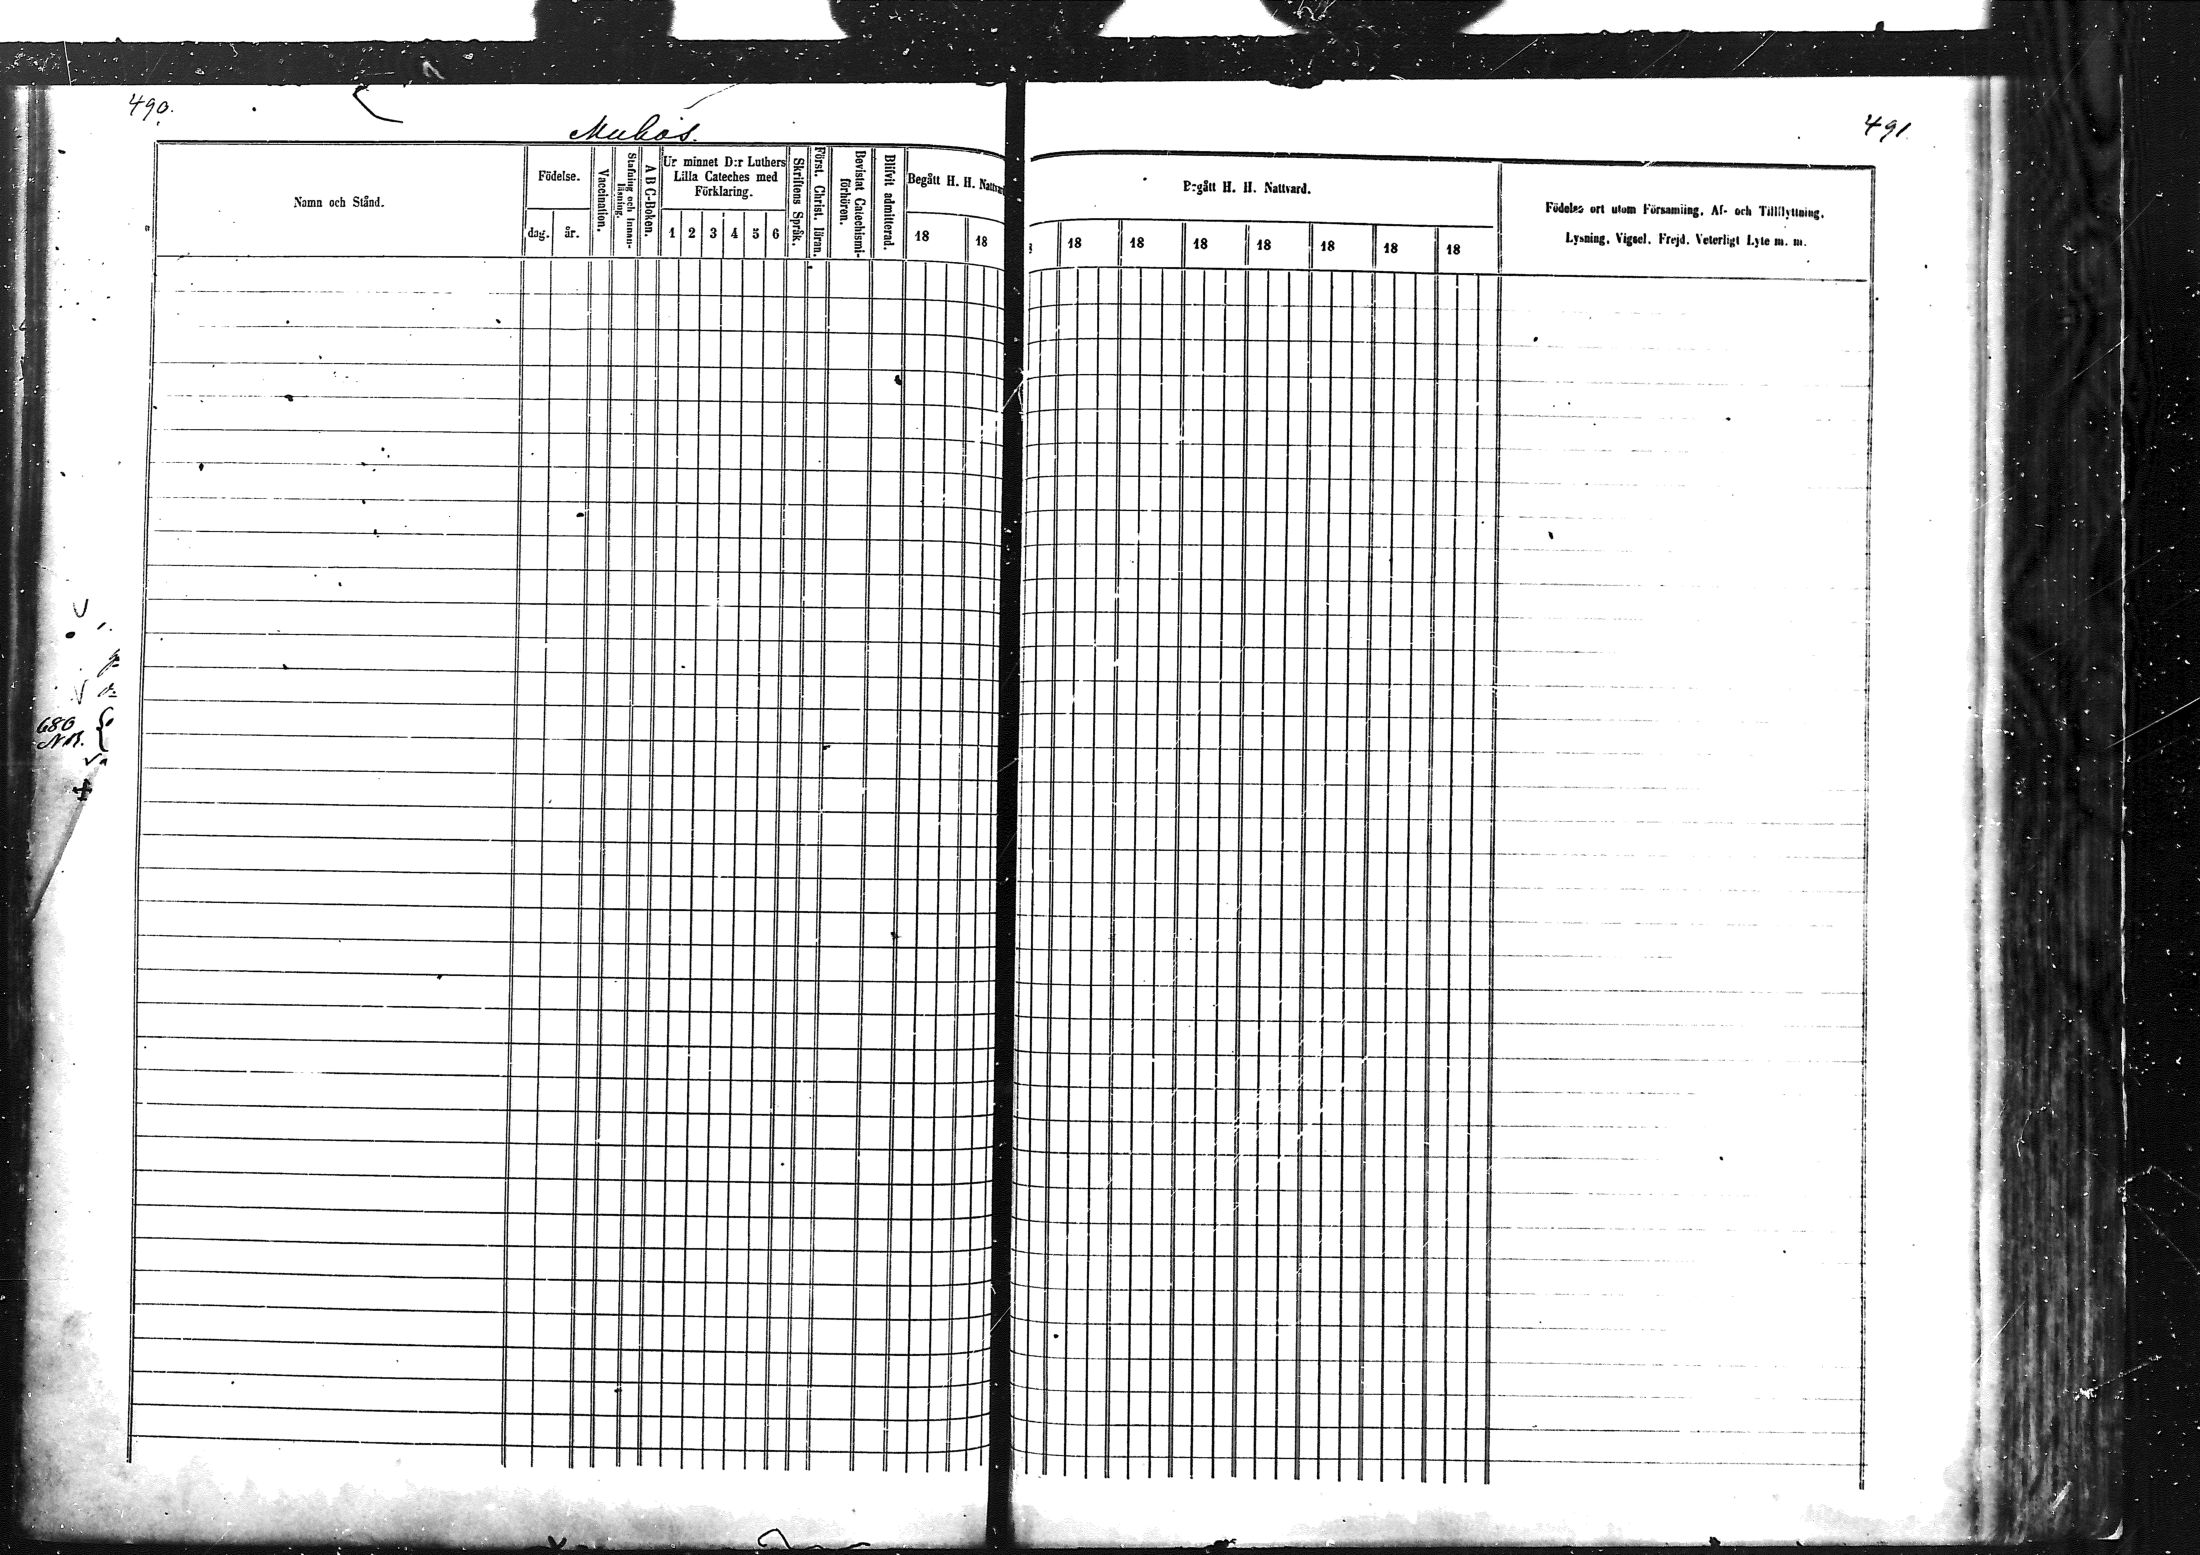 490.
Muhos.
Namn och Stånd.
Födelse.
dag.
år.
Vaccination.
Stafning och Innan-
läsning.
A B C-Boken.
Ur minnet D:r Luthers
Lilla Cateches med
Förklaring.
1 2 3 4 5 6
Skriftens Språk.
Först. Christ. läran.
Bevistat Catechismi-
förhören.
Blifvit admitterad.
Begått H. H. Nattvard
18 18
680
NB.
491
Begått H. H. Nattvard.
18 18 18 18 18 18 18
Födelse ort utom Församling, Af- och Tillflyttning,
Lysning, Vigsel, Frejd, Veterligt Lyte m. m.